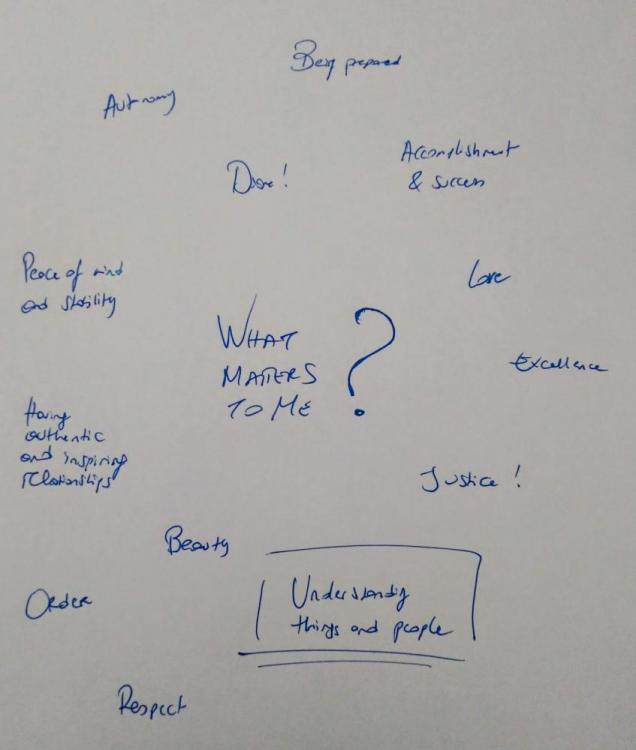 Being prepared
Autonomy
Accomplishment
& success
Done!
Peace of mind
and stability
Love
WHAT
MATTERS
TO ME ?
Excellence
Having
authentic
and inspiring
relationships
Justice !
Beauty
Understanding
things and people
Order
Respect